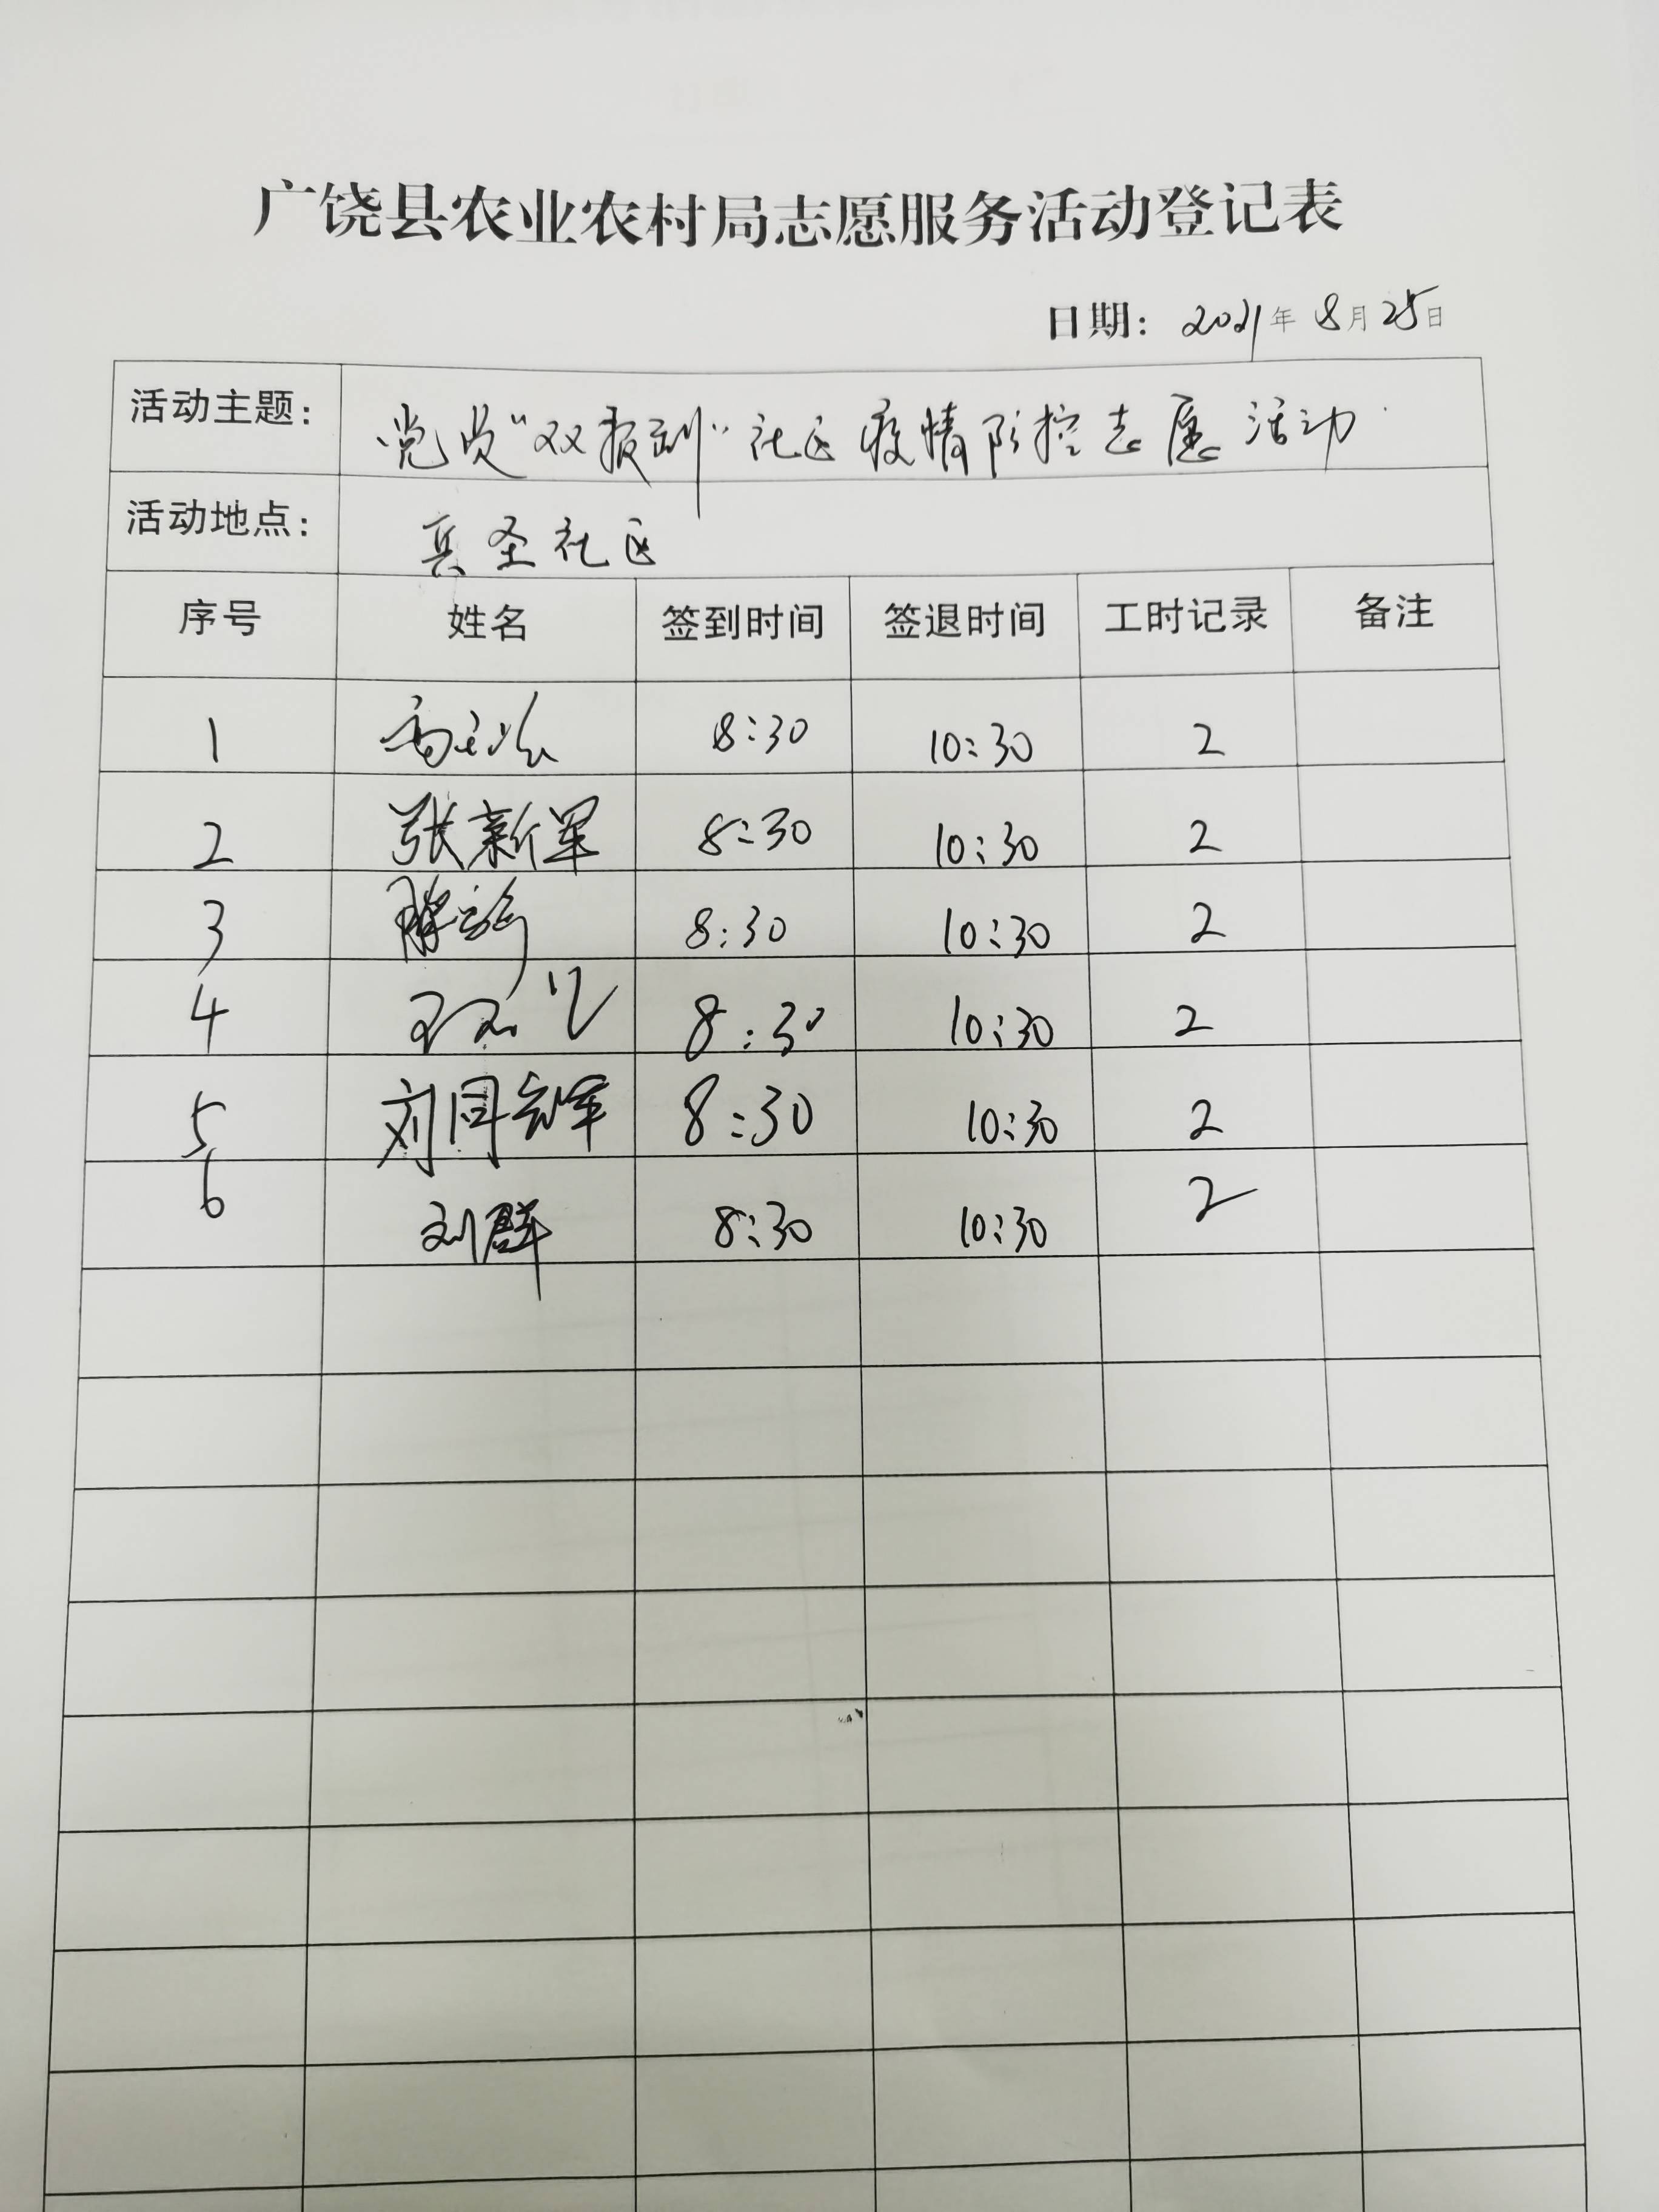 广饶县农业农村局志愿服务活动登记表
日期: 2021年 8月25日
活动主题: 党员"双报到"社区疫情防控志愿活动
活动地点: 真圣社区
序号 姓名 签到时间 签退时间 工时记录 备注
1 8:30 10:30 2
2 张新军 8:30 10:30 2
3 8:30 10:30 2
4 8:30 10:30 2
5 刘同军 8:30 10:30 2
6 刘群 8:30 10:30 2